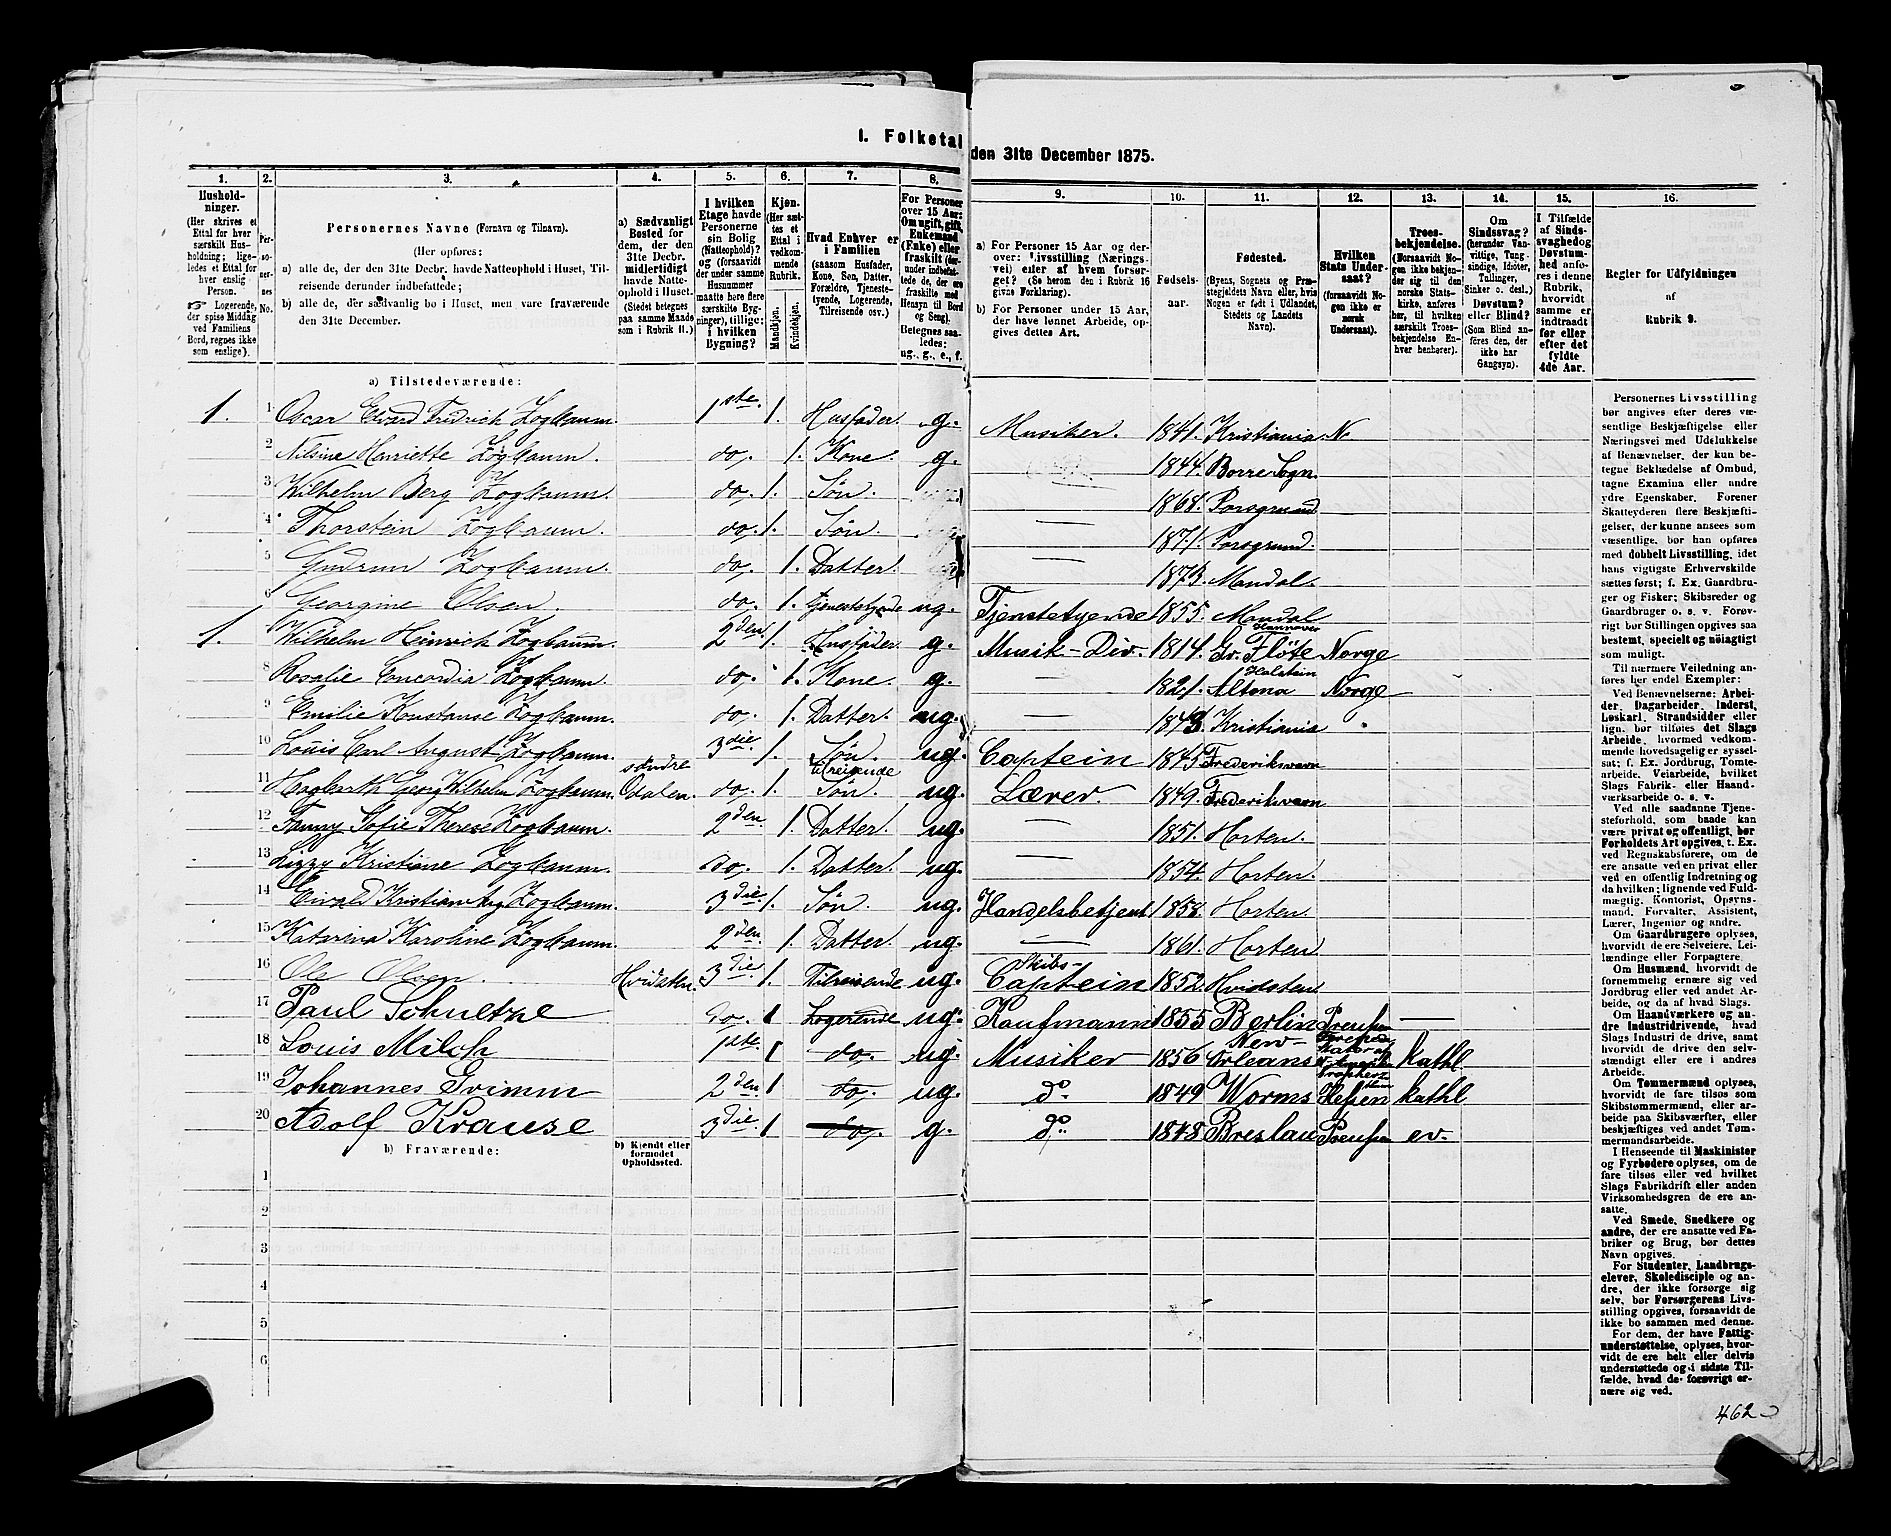 I. Folketal den 31te December 1875.
1. 2. 3. 4. 5. 6. 7. 8. 9. 10. 11. 12. 13. 14. 15. 16.
Husholdninger. (Her skrives et Ettal for hver særskilt Husholdning; ligeledes et Ettal for enslig Person. ☞ Logerende, der spise Middag ved Familiens Bord, regnes ikke som enslige).
Personernes No.
Personernes Navne (Fornavn og Tilnavn).
(Her opføres:
a) alle de, der den 31te Decbr. havde Natteophold i Huset, Tilreisende derunder indbefattede;
b) alle de, der sædvanlig bo i Huset, men vare fraværende den 31te December.
a) Sædvanligt Bosted for dem, der den 31te Decbr. midlertidigt havde Natteophold i Huset. (Stedet betegnes paa samme Maade som i Rubrik 11.)
I hvilken Etage havde Personerne sin Bolig (Natteophold)? og (forsaavidt der under samme Husnummer maatte høre flere Bygninger), tillige: i hvilken Bygning?
Kjøn. (Her sættes et Ettal i vedkommende Rubrik.
Mandkjøn. Kvindekjøn.
Hvad Enhver er i Familien (saasom Husfader, Kone, Søn, Datter, Forældre, Tjenestetyende, Logerende, Tilreisende osv.)
For Personer over 15 Aar: Om ugift, gift, Enkemand (Enke) eller fraskilt (derunder indbefattede de, der ere fraskilte med Hensyn til Bord og Seng). Betegnes saaledes: ug., g., e., f.
a) For Personer 15 Aar og derover: Livsstilling (Næringsvei) eller af hvem forsørget? (Se herom den i Rubrik 16 givne Forklaring).
b) For Personer under 15 Aar, der have lønnet Arbeide, opgives dettes Art.
Fødselsaar.
Fødested. (Byens, Sognets og Præstegjeldets Navn eller, hvis Nogen er født i Udlandet, Stedets og Landets Navn).
Hvilken Stats Undersaat? (forsaavidt Nogen ikke er norsk Undersaat).
Troesbekjendelse. (Forsaavidt Nogen ikke bekjender sig til den norske Statskirke, anføres her, til hvilken særskilt Troesbekjendelse Enhver henhører).
Om Sindssvag? (herunder Vanvittige, Tungsindige, Idioter, Tullinger, Sinker o. desl.). Døvstum? eller Blind? (Som Blind anføres den, der ikke har Gangsyn).
I Tilfælde af Sindssvaghed og Døvstumhed anføres i denne Rubrik, hvorvidt samme er indtraadt før eller efter det fyldte 4de Aar.
Regler for Udfyldningen af Rubrik 9.
a) Tilstedeværende:
1. 1 Oscar Edvard Fridrich Zogbaum. 1ste. 1. Husfader. g. Musiker. 1841. Kristiania N
2 Nilsine Henriette Zogbaum. do. 1. Kone. g. 1844. Borre Sogn.
3 Wilhelm Berg Zogbaum. do. 1. Søn. 1868. Porsgrund
4 Thorstein Zogbaum. do. 1. Søn. 1871. Porsgrund.
5 Gudrun Zogbaum. do. 1. Datter. 1873. Mandal.
6 Georgine Olsen. do. 1. Tjenestetyende ug. Tjenstetyende 1855. Mandal
1. Wilhelm Heinrich Zogbaum. 2den. 1. Husfader. g. Musik-Dir. 1814. Gr. Flöte Hannover Norge
8 Rosalie Concordia Zogbaum. do. 1. Kone g. 1821. Altona Holstein Norge
9 Emilie Konstanse Zogbaum. do. 1. Datter. ug. 1843. Kristiania
10 Louis Carl August Zogbaum. 3die. 1. Søn. ug. Captein 1845. Frederiksværn
11 Hagbarth Georg Wilhelm Zogbaum. søndre Odalen. do. 1. tilreisende Søn. ug. Lærer. 1849. Frederiksværn
12 Fanny Sofie Therese Zogbaum. 2den. 1. Datter. ug. 1851. Horten.
13 Lizzy Kristiane Zogbaum. do. 1. Datter. ug. 1854. Horten.
14 Eivald Kristian Aug Zogbaum. 3die. 1. Søn. ug. Handelsbetjent 1858. Horten.
15 Katarina Karoline Zogbaum. 2den. 1. Datter. ug. 1861. Horten.
16 Ole Olsen. Hvidsten. 3die. 1. Tilreisende ug. Skibs-Captein 1852. Hvidsten
17 Paul Schultze do. 1 Logerende ug. Kaufmann 1855 Berlin Preussen
18 Louis Milch 1ste 1 do. ug. Musiker 1856 New-Orleans kathl
19 Johannes Grimm 2den 1 do. ug. do. 1849 Worms Hessen kathl
20 Adolf Krause 3die. 1 do. g. do. 1848. Breslau Preussen ev.
b) Fraværende:
b) Kjendt eller formodet Opholdssted.
1
2
3
4
5
6
Personernes Livsstilling
bør angives efter deres væ-
sentlige Beskjæftigelse eller
Næringsvei med Udelukkelse
af Benævnelser, der kun be-
tegne Beklædelse af Ombud,
tagne Examina eller andre
ydre Egenskaber. Forener
Skatteyderen flere Beskjæfti-
gelser, der kunne ansees som
væsentlige, bør han opføres
med dobbelt Livsstilling, idet
hans vigtigste Erhvervskilde
sættes først; f. Ex. Gaardbru-
ger og Fisker; Skibsreder og
Gaardbruger o. s. v. Forøv-
rigt bør Stillingen opgives saa
bestemt, specielt og nöiagtigt
som muligt.
Til nærmere Veiledning an-
føres her endel Exempler:
Ved Benævnelserne: Arbei-
der, Dagarbeider, Inderst,
Løskarl, Strandsidder eller
lign. bør tilføies det Slags
Arbeide, hvormed vedkom-
mende hovedsagelig er syssel-
sat; f. Ex. Jordbrug, Tomte-
arbeide, Veiarbeide, hvilket
Slags Fabrik- eller Haand-
værksarbeide o. s. v.
Ved alle saadanne Tjene-
steforhold, som baade kan
være privat og offentligt, bør
Forholdets Art opgives, t. Ex.
ved Regnskabsførere, om de
ere ansatte ved en privat eller
ved en offentlig Indretning og
da hvilken; lignende ved Fuld-
mægtig, Kontorist, Opsyns-
mand, Forvalter, Assistent,
Lærer, Ingeniør og andre.
Om Gaardbrugere oplyses,
hvorvidt de ere Selveiere, Lei-
lændinge eller Forpagtere.
Om Husmænd, hvorvidt de
fornemmelig ernære sig ved
Jordbrug eller ved andet Ar-
beide, og da af hvad Slags.
Om Haandværkere og an-
dre Industridrivende, hvad
Slags Industri de drive, samt
hvorvidt de drive den selv-
stændigt eller ere i andres
Arbeide.
Om Tømmermænd oplyses,
hvorvidt de fare tilsøs som
Skibstømmermænd, eller ar-
beide paa Skibsværfter, eller
beskjæftiges ved andet Tøm-
mermandsarbeide.
I Henseende til Maskinister
og Fyrbødere oplyses, om de
fare tilsøs eller ved hvilket
Slags Fabrikdrift eller anden
Virksomhedsgren de ere an-
satte.
Ved Smede, Snedkere og
andre, der ere ansatte ved Fa-
briker og Brug, bør dettes
Navn opgives.
For Studenter, Landbrugs-
elever, Skoledisciple og an-
dre, der ikke forsørge sig
selv, bør Forsørgerens Livs-
stilling opgives, forsaavidt de
ikke bo sammen med denne.
For dem, der have Fattig-
understøttelse, oplyses, hvor-
vidt de ere helt eller delvis
understøttede og i sidste Til-
fælde, hvad de forøvrigt er-
nære sig ved.
462